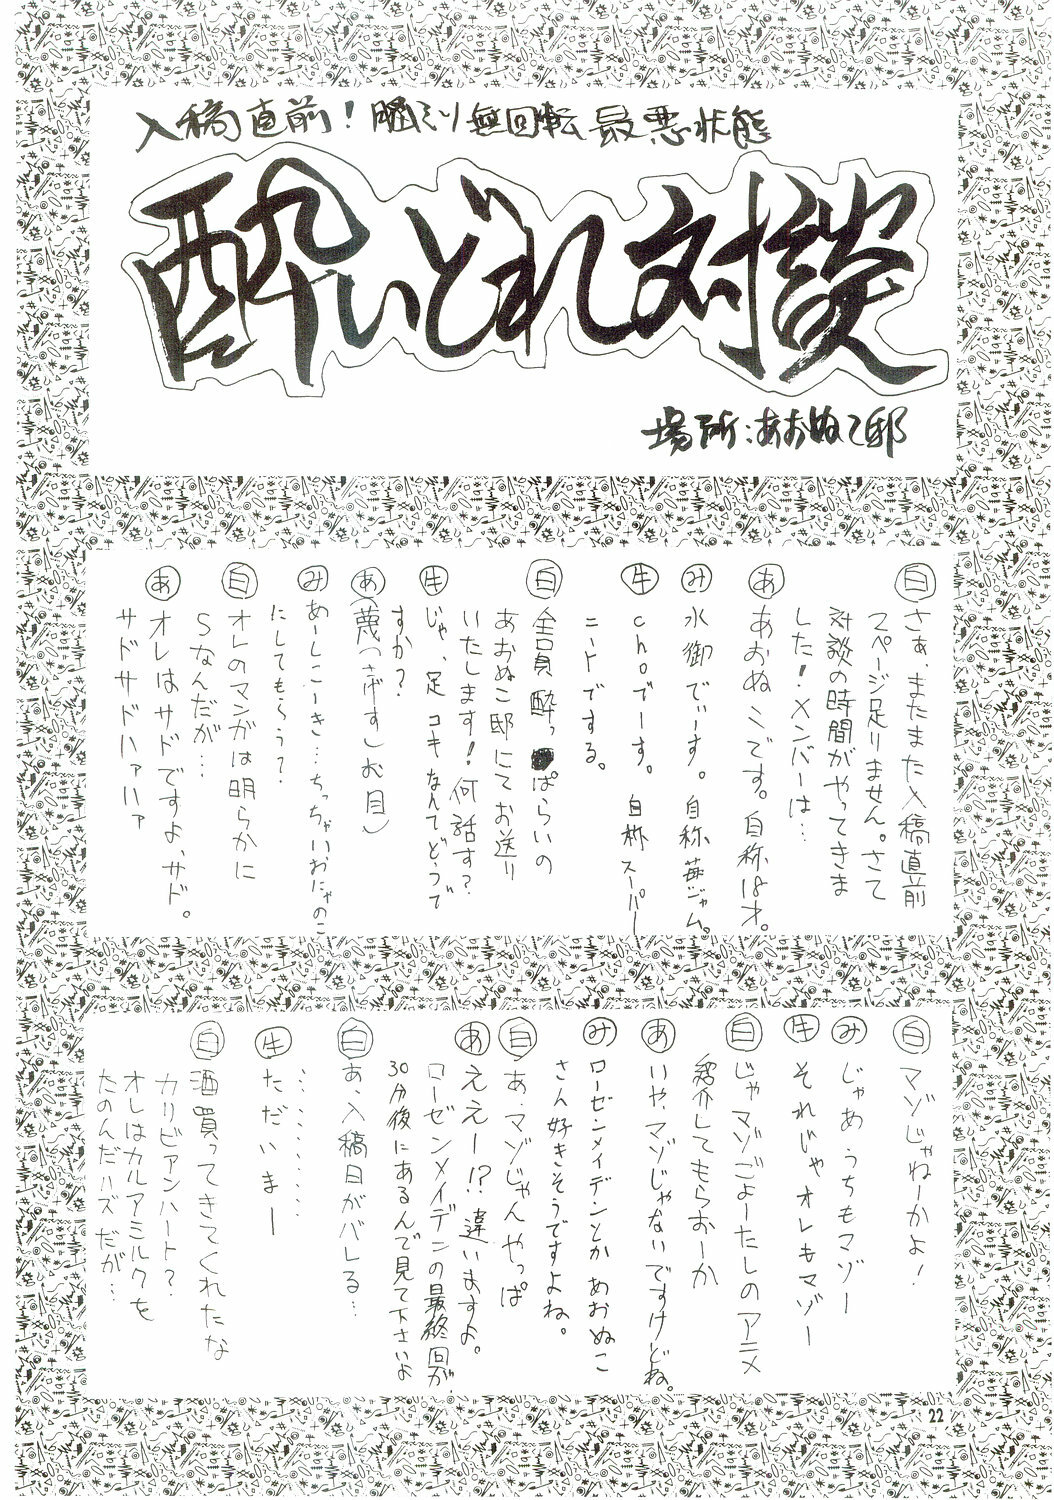 入稿直前！脳ミソ無回転最悪状態
酔いどれ対談
場所：あおぬこ邸
白 さぁ、またまた入稿直前
でページ足りません。さて
対談の時間がやってきま
した！メンバーは…
あ あおぬこです。自称18才。
み 水御でぃーす。自称苺ジャム。
牛 choでーす。自称スーパー
ニートでする。
白 全員酔っぱらいの
あおぬこ邸にてお送り
いたします！何話す？
牛 じゃ、足コキなんてどうで
すか？
あ （蔑っさげすしむ目）
み めーしこーき…ちっちゃいおにゃのこ
にしてもらう？
白 オレのマンガは明らかに
Sなんだが…
あ オレはサドですよ、サド。
サドサドハァハァ
白 マゾじゃねーかよ！
み じゃあうちもマゾー
牛 それじゃオレもマゾー
白 じゃマゾごよーたしのアニメ
紹介してもらおーか
あ いや、マゾじゃないですけどね。
み ローゼンメイデンとかあおぬこ
さん好きそうですよね。
白 あ、マゾじゃんやっぱ
あ ええー！？違いますよ。
ローゼンメイデンの最終回が
30分後にあるんで見て下さいよ
白 あ、入稿日がバレる…
………
牛 ただいまー
白 酒買ってきてくれたな
カリビアンハート？
オレはカルアミルクを
たのんだハズだが…
22